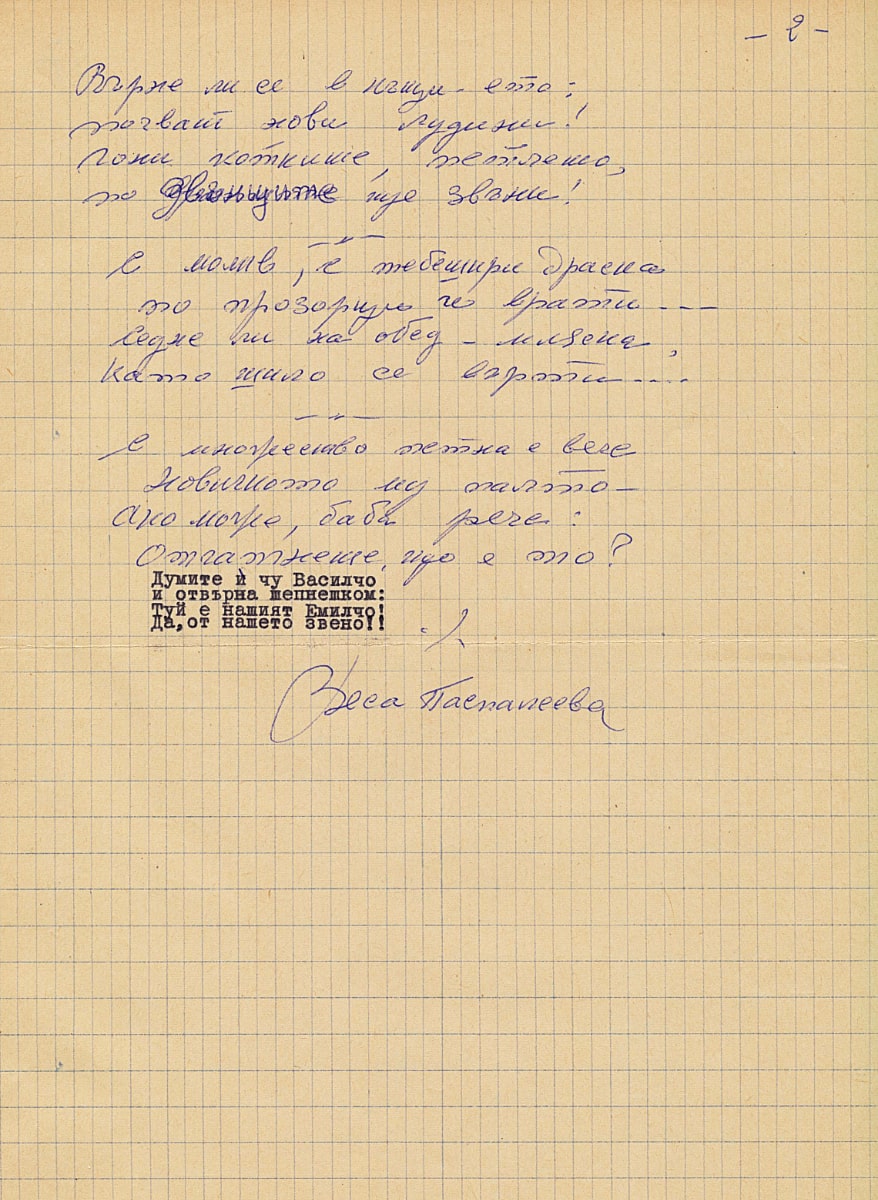 - 2 -
Върне ли се в къщи - ето:
почват нови лудини!
Гони котките, петлето,
по звънците ще звъни!
С молив, с тебешири драска
по прозорци и врати ---
Седне ли на обед - мляска,
Като шило се върти ----
С множество петна е вече
Новичкото му палто -
Ако може, баба рече:
Отгатнете, що е то?
Думите ѝ чу Василчо
и отвърна шепнешком:
Туй е нашият Емилчо!
Да, от нашето звено!!
Веса Паспалеева